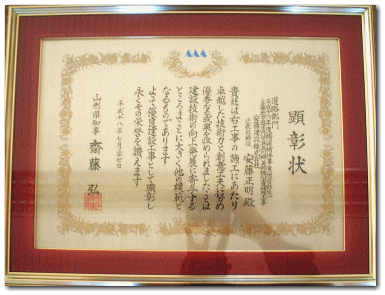 顕彰状
道路部門
安藤建設株式会社
代表取締役
安藤正明 殿
貴社は右工事の施工にあたり
卓越した技術力と創意工夫に努め
優秀な成果を収められましたことは
建設技術の向上発展に寄与する
ところまことに大きく他の模範と
なるものであります
よって優良建設工事として顕彰し
永くその栄誉を讃えます
平成十八年七月二十七日
山形県知事 齋藤 弘